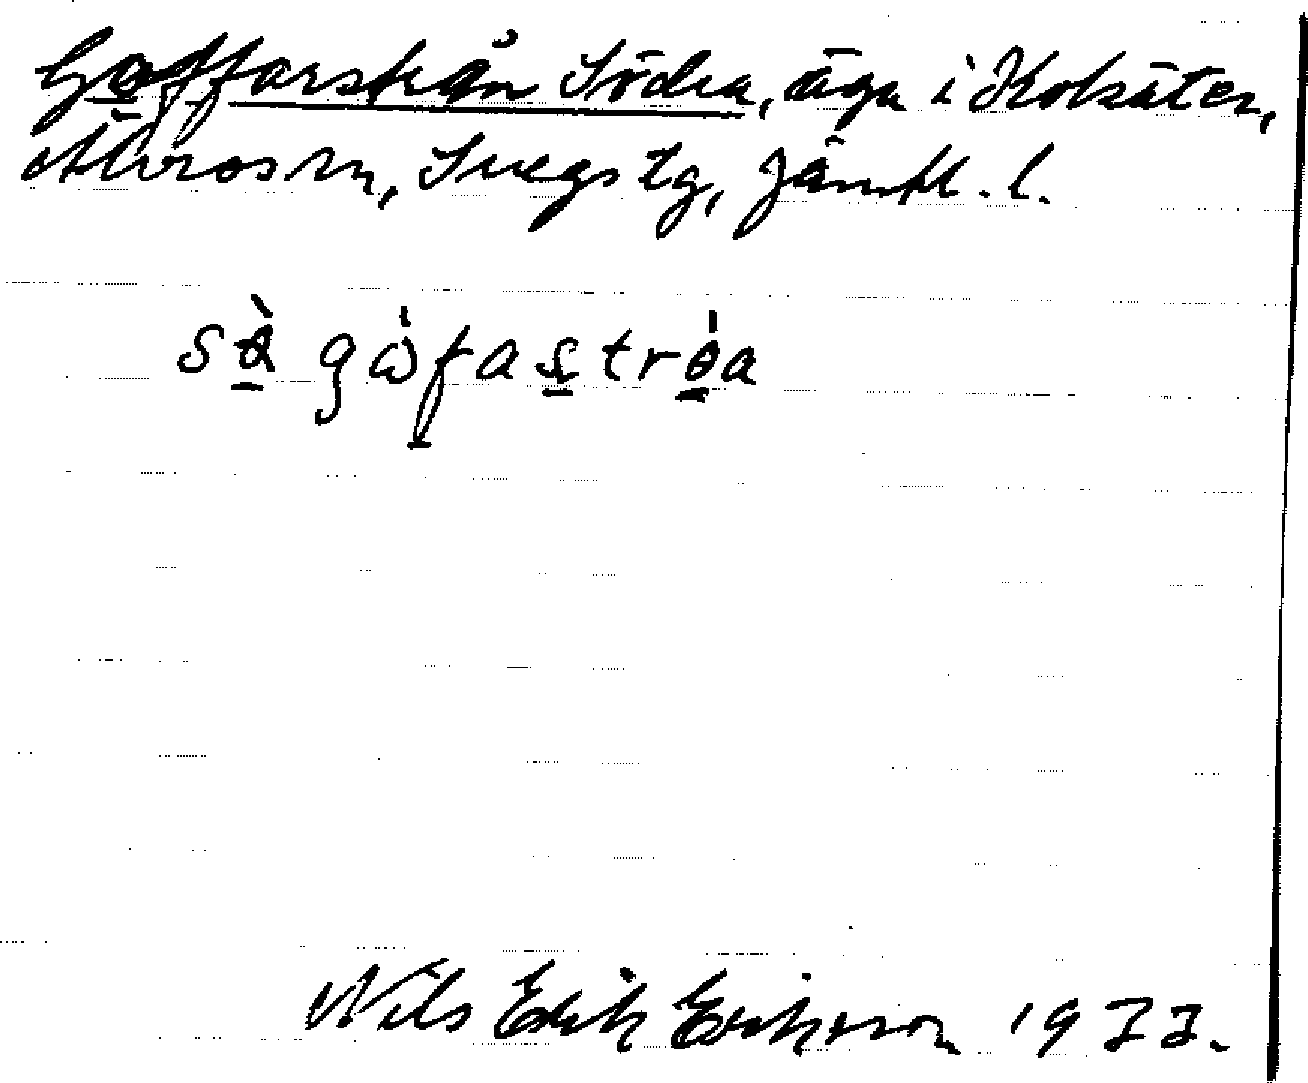 Gaffarstrån Södra, äga i Kolsäter,
Älvros sn, Svegs tg, Jämtl. l.
sà gὼfastròa
Nils Erik Erikson 1933.